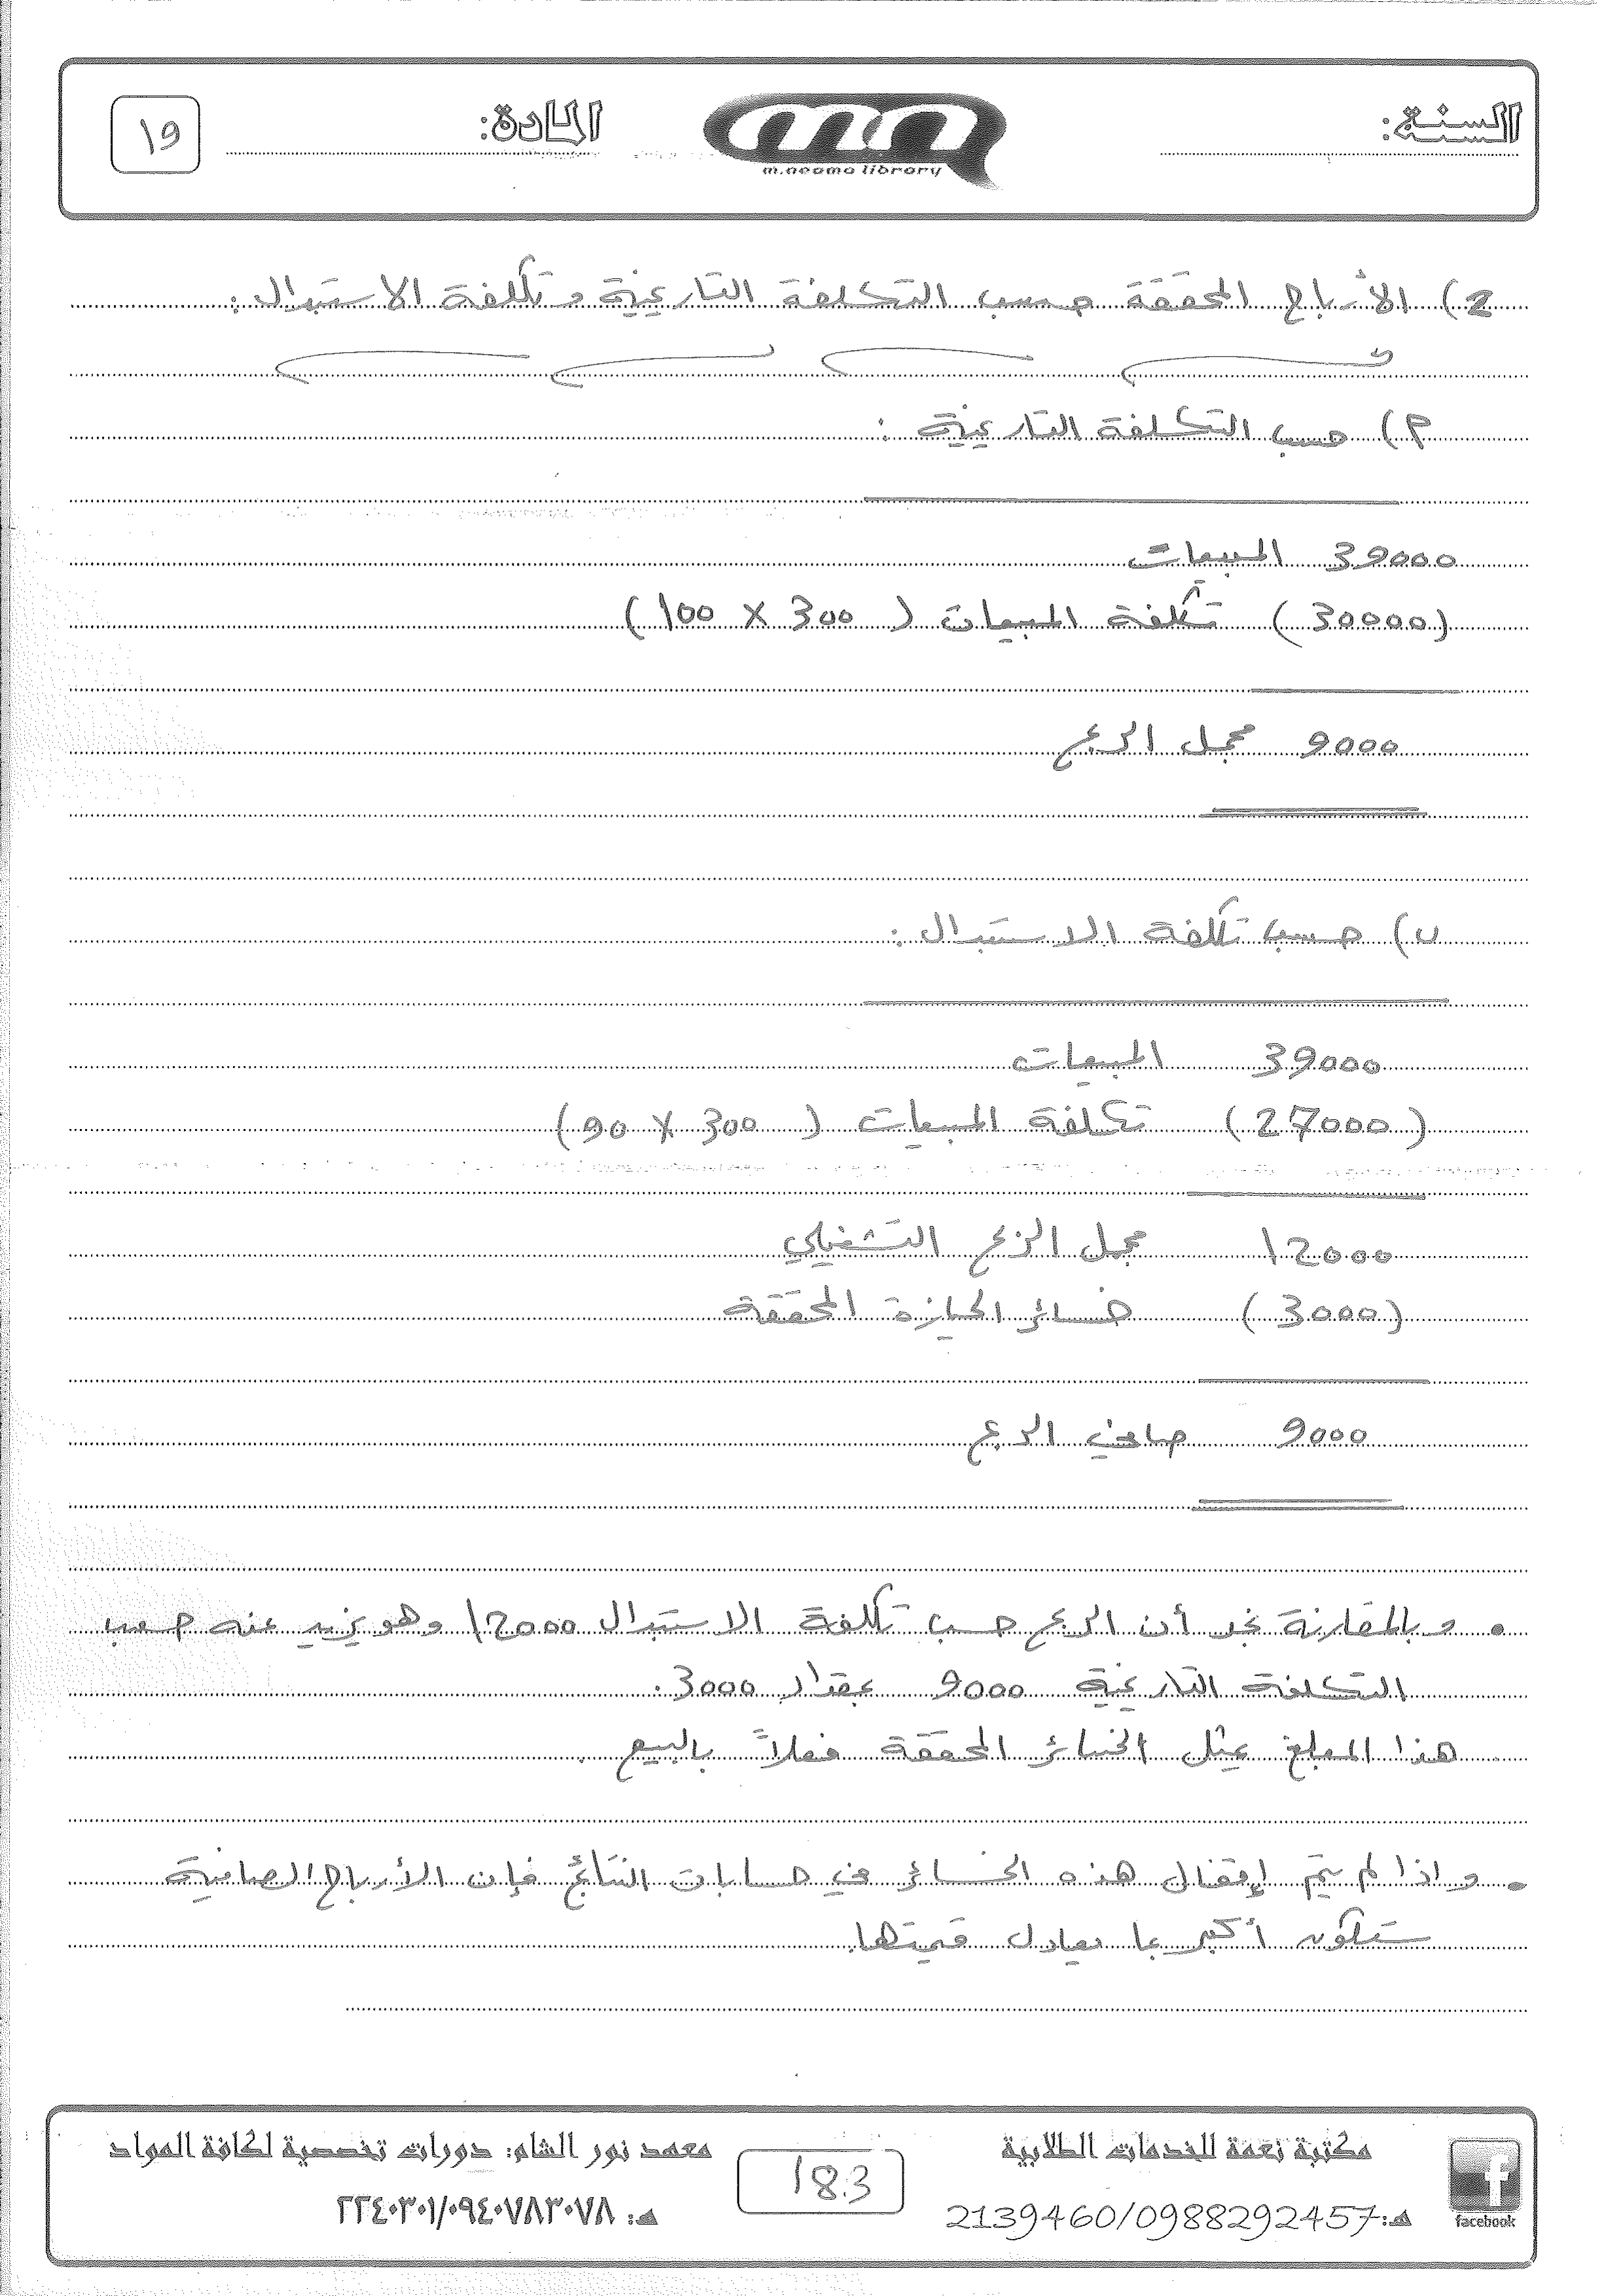 السنة:
m.neama library
المادة:
١٩
2) الأرباح المحققة حسب التكلفة التاريخية وتكلفة الاستبدال:
م) حسب التكلفة التاريخية:
39000 المبيعات
(30000) تكلفة المبيعات (300 × 100)
9000 مجمل الربح
ب) حسب تكلفة الاستبدال:
39000 المبيعات
(27000) تكلفة المبيعات (300 × 90)
12000 مجمل الربح التشغيلي
(3000) خسائر الحيازة المحققة
9000 صافي الربح
• وبالمقارنة نجد أن الربح حسب تكلفة الاستبدال 12000 وهو يزيد عنه حسب
التكلفة التاريخية 9000 بمقدار 3000.
هذا المبلغ يمثل الخسائر المحققة فعلاً بالبيع.
• واذا لم يتم إقفال هذه الخسائر في حسابات النتائج فإن الأرباح الصافية
ستكون أكبر بما يعادل قيمتها.
facebook
مكتبة نعمة للخدمات الطلابية
هـ: 2139460/0988292457
183
معهد نور الشام: دورات تخصصية لكافة المواد
هـ: ٢٢٤٠٣٠١/٠٩٤٠٧٨٣٠٧٨